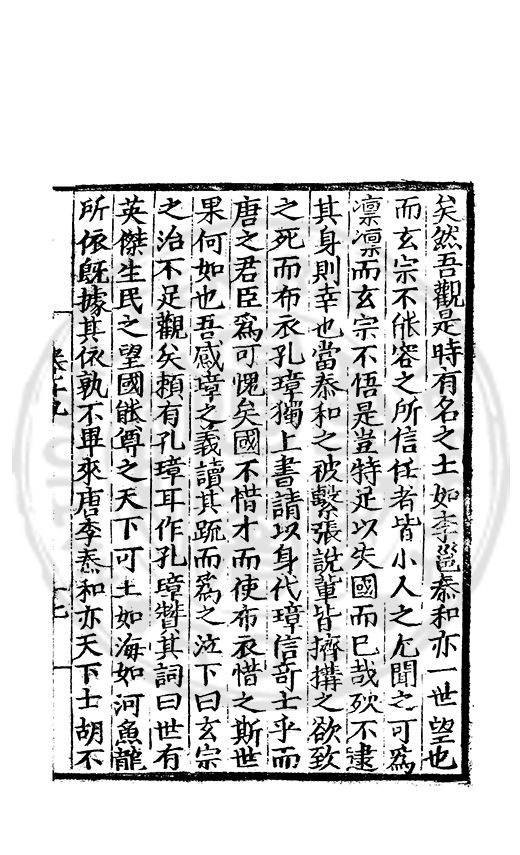 矣然吾觀是時有名之士如李邕泰和亦一世望也
而玄宗不能容之所信任者皆小人之尤聞之可為
凛凛而玄宗不悟是豈特足以失國而已哉歿不逮
其身則幸也當泰和之被繫張說軰皆擠搆之欲致
之死而布衣孔璋獨上書請以身代璋信奇士乎而
唐之君臣為可愧矣國不惜才而使布衣惜之斯世
果何如也吾感璋之義讀其䟽而為之泣下曰玄宗
之治不足觀矣頼有孔璋耳作孔璋賛其詞曰世有
英傑生民之望國能尊之天下可士如海如河魚龍
所依旣據其依孰不畢來唐李泰和亦天下士胡不